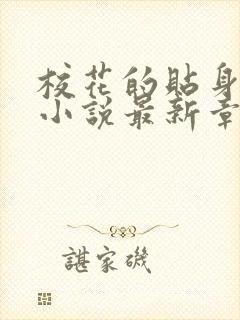 校花的貼身
小說最新章
諶家磯